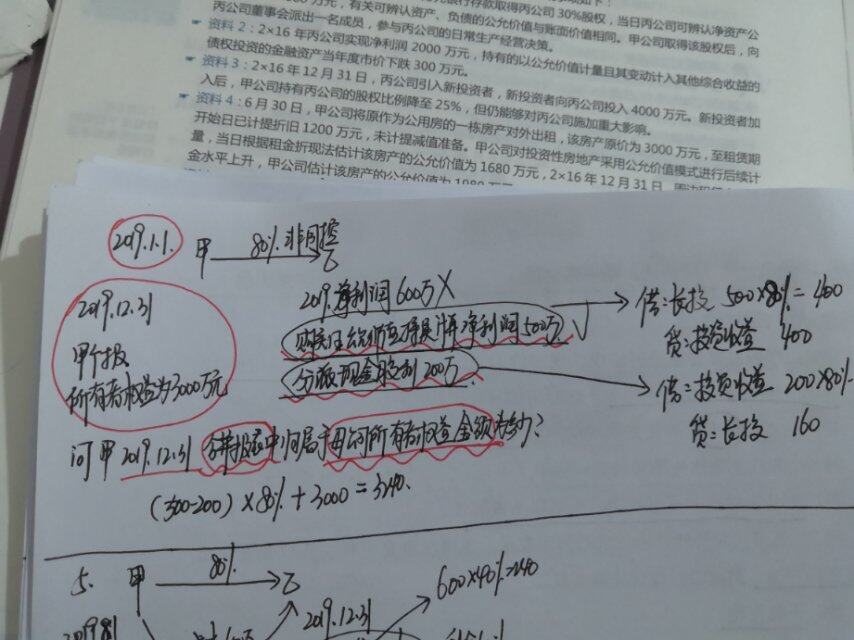 银行存款取得丙公司30%股权,当日丙公司可辨认净资产公
万元,有关可辨认资产、负债的公允价值与账面价值相同。甲公司取得该股权后,向
丙公司董事会派出一名成员,参与丙公司的日常生产经营决策。
资料2:2×16年丙公司实现净利润2000万元,持有的以公允价值计量且其变动计入其他综合收益的
债权投资的金融资产当年度市价下跌300万元。
资料3:2×16年12月31日,丙公司引入新投资者,新投资者向丙公司投入4000万元。新投资者加
入后,甲公司持有丙公司的股权比例降至25%,但仍能够对丙公司施加重大影响。
资料4:6月30日,甲公司将原作为公用房的一栋房产对外出租,该房产原价为3000万元,至租赁期
开始日已计提折旧1200万元,未计提减值准备。甲公司对投资性房地产采用公允价值模式进行后续计
量,当日根据租金折现法估计该房产的公允价值为1680万元,2×16年12月31日
金水平上升,甲公司估计该房产的公允价值为1980万元
2019.1.1. 甲 80% 非同控 乙
2019.12.31
甲个报
所有者权益为3000万元
2019净利润600万 X
购买日公允价值持续计算净利润500万 √
分派现金股利200万
借:长投 500×80%=400
贷:投资收益 400
借:投资收益 200×80%
贷:长投 160
问甲2019.12.31合并报表中归属于母公司所有者权益金额为多少?
(500-200)×80%+3000=3240.
5. 甲 80% 乙
600×40%=240
2019.12.31